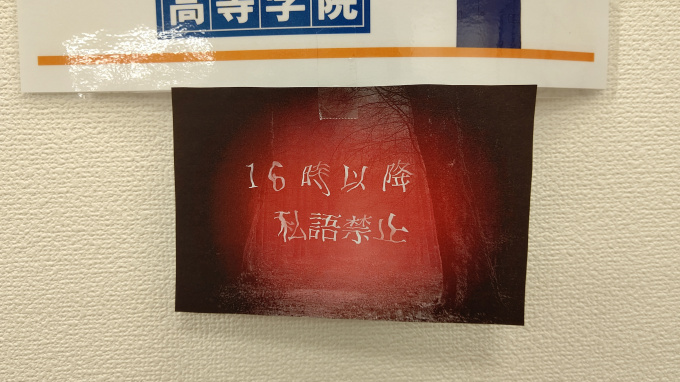 高等学院
16時以降
私語禁止